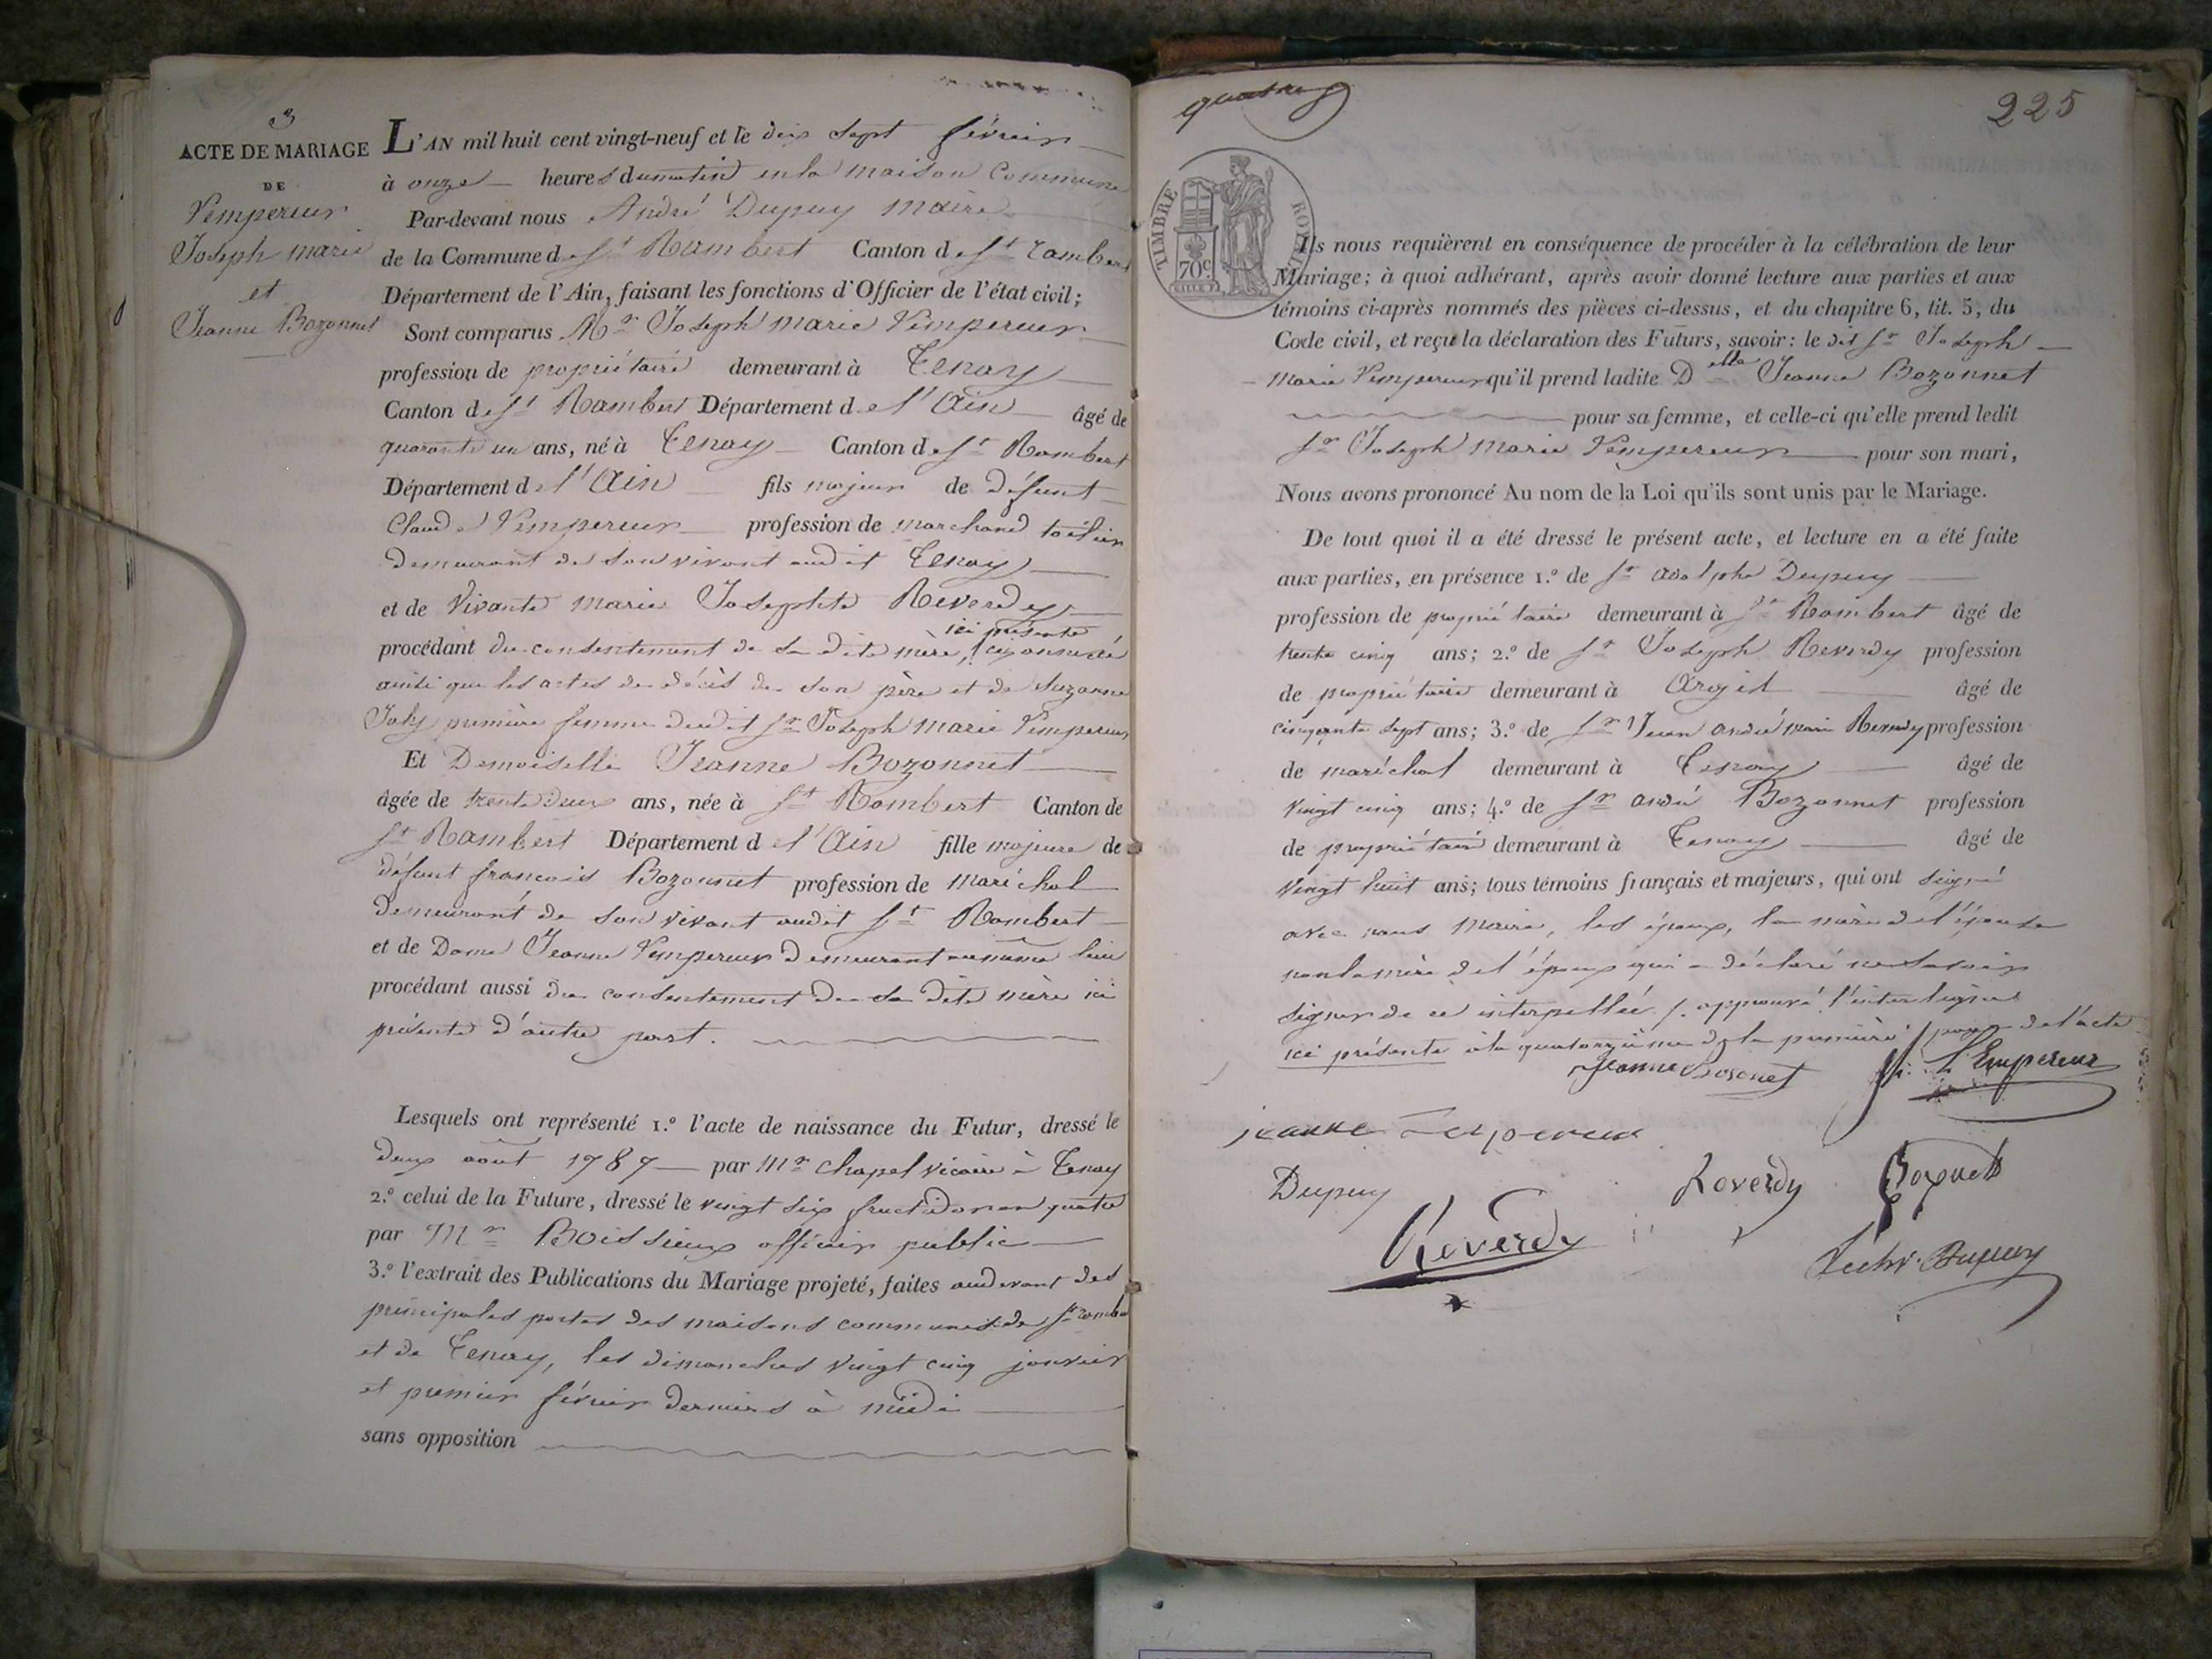 3
ACTE DE MARIAGE
DE
L'empereur
Joseph marie
et
Jeanne Bozonnet
L'AN mil huit cent vingt-neuf et le dix sept février
à onze heures du matin en la maison Commune
Par-devant nous André Dupuy maire
de la Commune de St Rambert Canton de St rambert
Département de l'Ain, faisant les fonctions d'Officier de l'état civil;
Sont comparus Mr Joseph marie L'empereur
profession de propriétaire demeurant à Tenay
Canton de St Rambert Département de l'Ain âgé de
quarante un ans, né à Tenay Canton de St Rambert
Département de l'Ain fils majeur de défunt
Claude L'empereur profession de marchand toilier
demeurant de son vivant audit Tenay
et de vivante marie Josephte Reverdy
ici présente
procédant du consentement de sa dite mère,
ainsi que les actes de décès de son père et de Suzanne
Joly première femme dudit Sr Joseph marie L'empereur
Et Demoiselle Jeanne Bozonnet
âgée de trente deux ans, née à St Rambert Canton de
St Rambert Département de l'Ain fille majeure de
défunt francois Bozonnet profession de maréchal
demeurant de son vivant audit St Rambert
et de Dame Jeanne L'empereur demeurant au même lieu
procédant aussi du consentement de sa dite mère ici
présente d'autre part.
Lesquels ont représenté 1.º l'acte de naissance du Futur, dressé le
deux août 1787 par Mr chapel vicaire à Tenay
2.º celui de la Future, dressé le vingt six fructidor an quatre
par Mr Boissieux officier public
3.º l'extrait des Publications du Mariage projeté, faites audevant des
principales portes des maisons communes de St ramber
et de Tenay, les dimanches vingt cinq janvier
et premier février derniers à midi
sans opposition
quatre
225
TIMBRE ROYAL
70c
Ils nous requièrent en conséquence de procéder à la célébration de leur
Mariage; à quoi adhérant, après avoir donné lecture aux parties et aux
témoins ci-après nommés des pièces ci-dessus, et du chapitre 6, tit. 5, du
Code civil, et reçu la déclaration des Futurs, savoir: le dit Sr Joseph
marie L'empereur qu'il prend ladite Delle Jeanne Bozonnet
pour sa femme, et celle-ci qu'elle prend ledit
Sr Joseph marie L'empereur pour son mari,
Nous avons prononcé Au nom de la Loi qu'ils sont unis par le Mariage.
De tout quoi il a été dressé le présent acte, et lecture en a été faite
aux parties, en présence 1.º de Sr adolphe Dupuy
profession de propriétaire demeurant à St Rambert âgé de
trente cinq ans; 2.º de Sr Joseph Reverdy profession
de propriétaire demeurant à Argis âgé de
cinquante sept ans; 3.º de Sr Jean andré marie Reverdy profession
de maréchal demeurant à Tenay âgé de
vingt cinq ans; 4.º de Sr andré Bozonnet profession
de propriétaire demeurant à Tenay âgé de
vingt huit ans; tous témoins français et majeurs, qui ont signé
avec nous maire, les époux, la mère de l'épouse
non la mère de l'époux qui a déclaré ne savoir
signer de ce interpellée /. approuvé l'interligne
ici présente à la quatorzième de la première page de l'acte
Jeanne Bosonet
L'Empereur
jeanne Lempereur
Dupuy
Reverdy
Reverdy
Dupuy